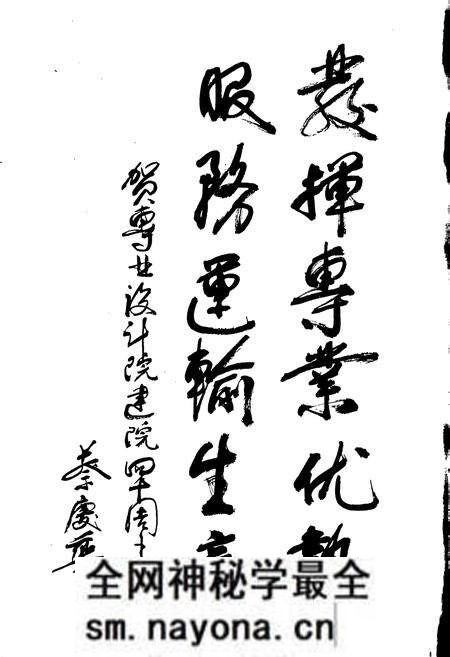 發揮專業优势
服務運輸生产
贺專业设计院建院四十周年
蔡慶
全网神秘学最全
sm.nayona.cn